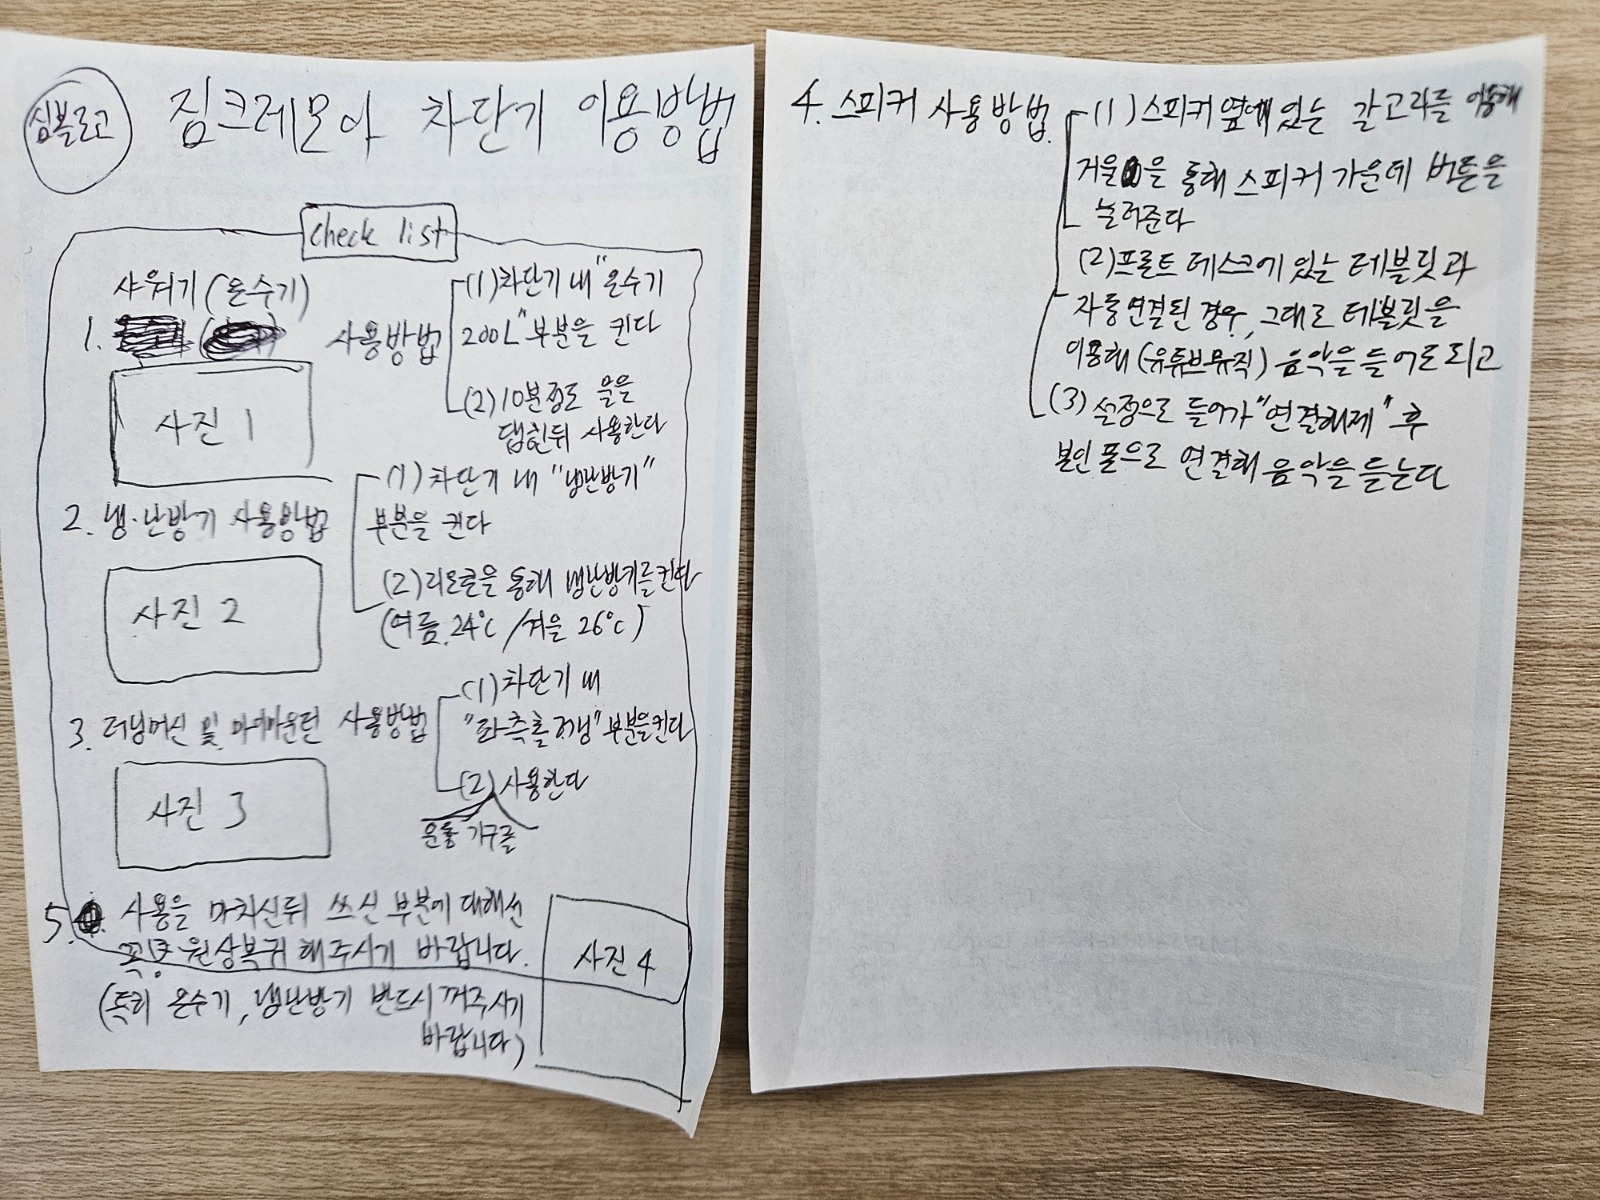 심볼로고
짐크레모아 차단기 이용방법
check list
샤워기(온수기)
1. 사용방법
(1)차단기 내 "온수기
200L" 부분을 킨다
(2)10분정도 물을
뎁힌뒤 사용한다
사진 1
2. 냉·난방기 사용방법
(1)차단기 내 "냉난방기"
부분을 킨다
(2)리모콘을 통해 냉난방기를킨다
(여름 24°C / 겨울 26°C)
사진 2
3. 러닝머신 및 마이마운틴 사용방법
(1)차단기 내
"좌측홀 전등" 부분을킨다
(2) 사용한다
운동 기구를
사진 3
5. 사용을 마치신뒤 쓰신 부분에 대해선
꼭 원상복귀 해주시기 바랍니다.
(특히 온수기, 냉난방기 반드시 꺼주시기
바랍니다)
사진 4
4. 스피커 사용방법
(1)스피커 옆에 있는 갈고리를 이용해
거울을 통해 스피커 가운데 버튼을
눌러준다
(2)프론트 데스크에 있는 테블릿과
자동연결된 경우, 그대로 테블릿을
이용해(유튜브뮤직) 음악을 들어도되고
(3) 설정으로 들어가 "연결해제" 후
본인 폰으로 연결해 음악을 듣는다